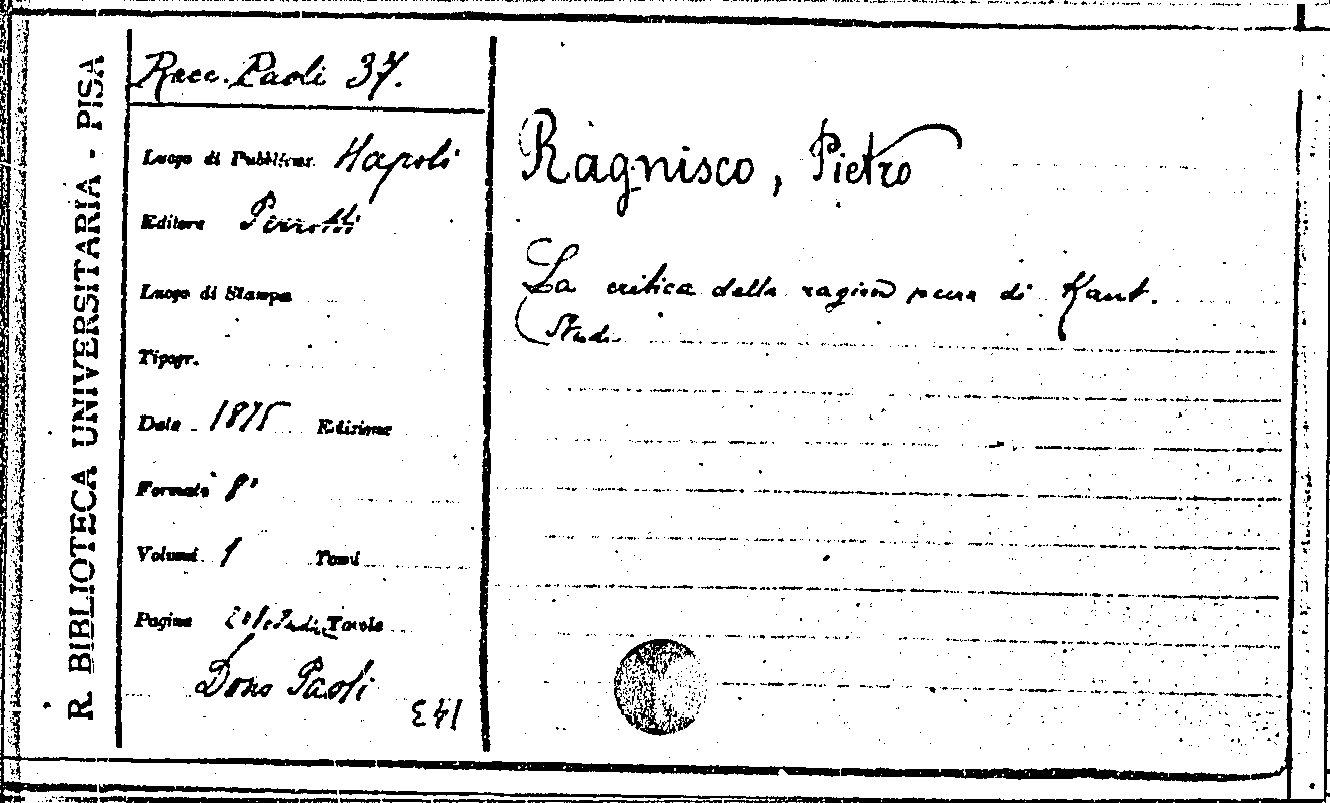 R. BIBLIOTECA UNIVERSITARIA - PISA
Racc. Paoli 37.
Luogo di Pubblicaz. Napoli
Editore Perrotti
Luogo di Stampa
Tipogr.
Data 1875 Edizione
Formato 8°
Volumi 1 Tomi
Pagine Tavole
Dono Paoli
143
Ragnisco, Pietro
La critica della ragion pura di Kant.
Studi